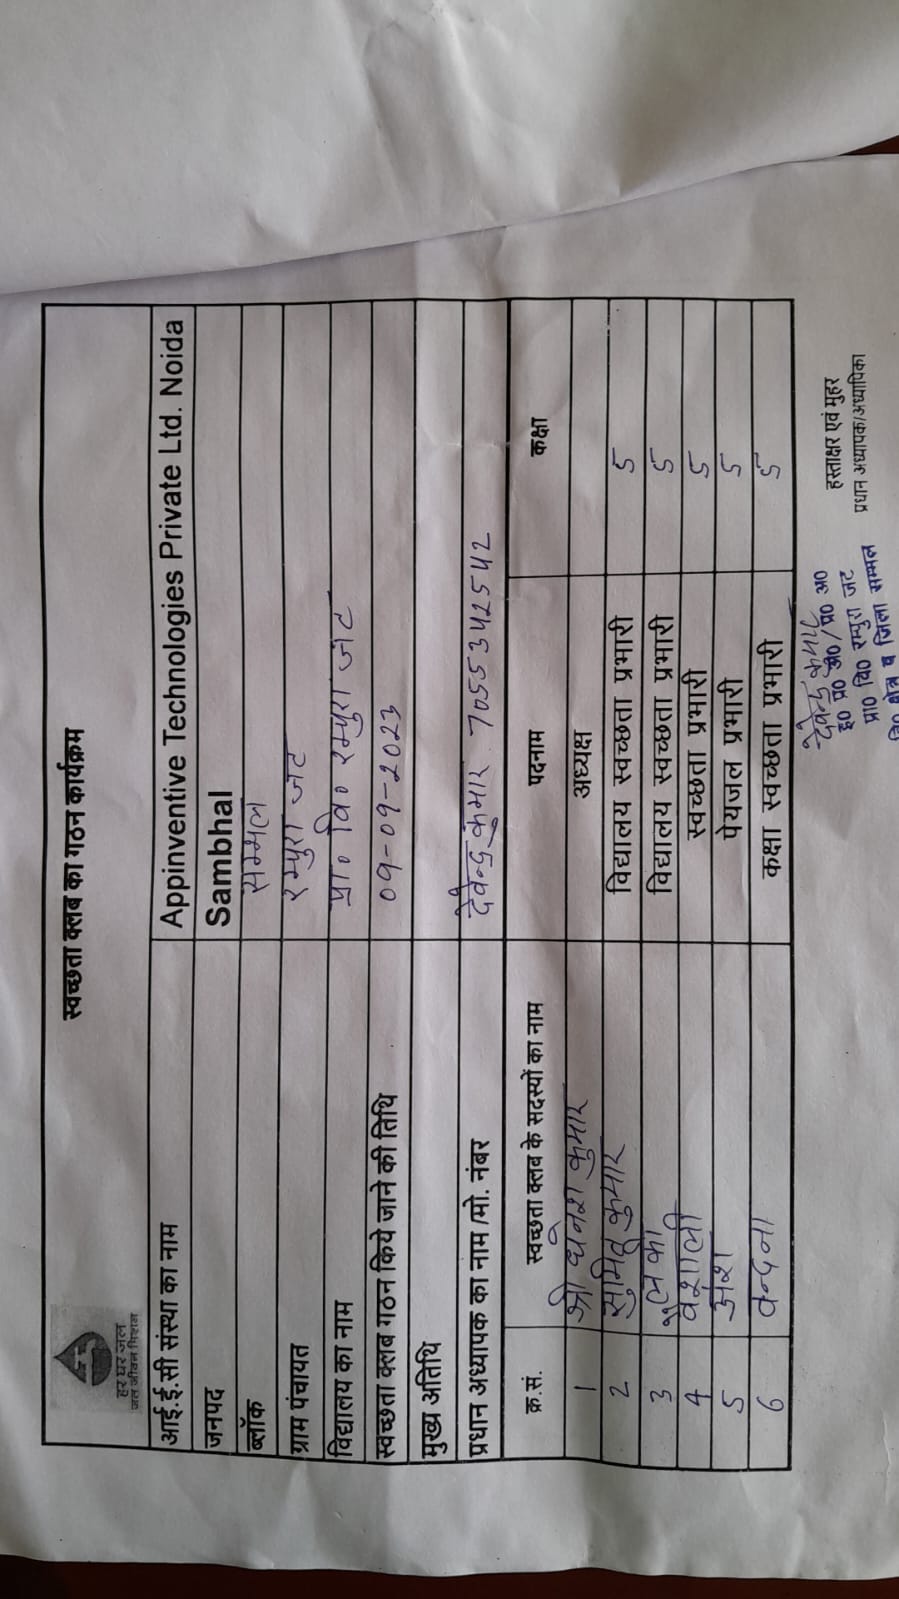 स्वच्छता क्लब का गठन कार्यक्रम
हर घर जल
जल जीवन मिशन
आई.ई.सी संस्था का नाम Appinventive Technologies Private Ltd. Noida
जनपद Sambhal
ब्लॉक सम्भल
ग्राम पंचायत रम्पुरा जट
विद्यालय का नाम प्रा० वि० रम्पुरा जट
स्वच्छता क्लब गठन किये जाने की तिथि 09-09-2023
मुख्य अतिथि
प्रधान अध्यापक का नाम /मो. नंबर देवेन्द्र कुमार 7055342542
क्र.सं. स्वच्छता क्लब के सदस्यों का नाम पदनाम कक्षा
1 श्री कुमार अध्यक्ष
2 सुमित कुमार विद्यालय स्वच्छता प्रभारी 5
3 विद्यालय स्वच्छता प्रभारी 5
4 वंशाली स्वच्छता प्रभारी 5
5 अंश पेयजल प्रभारी 5
6 वन्दना कक्षा स्वच्छता प्रभारी 5
देवेन्द्र कुमार
इ० प्र० अ०/प्र० अ०
प्रा० वि० रम्पुरा जट
वि० क्षेत्र व जिला सम्भल
हस्ताक्षर एवं मुहर
प्रधान अध्यापक/अध्यापिका